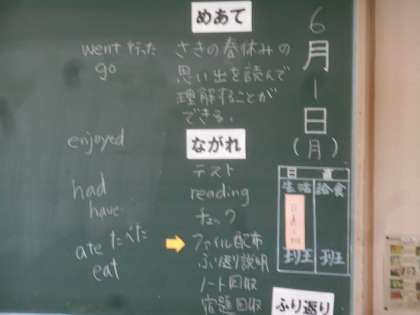 6月1日
(月)
日直
生活 給食
班 班
めあて
さきの春休みの
思い出を読んで
理解することが
できる。
ながれ
テスト
reading
チェック
ファイル配布
ふり返り説明
ノート回収
宿題回収
ふり返り
went 行った
go
enjoyed
had
have
ate たべた
eat